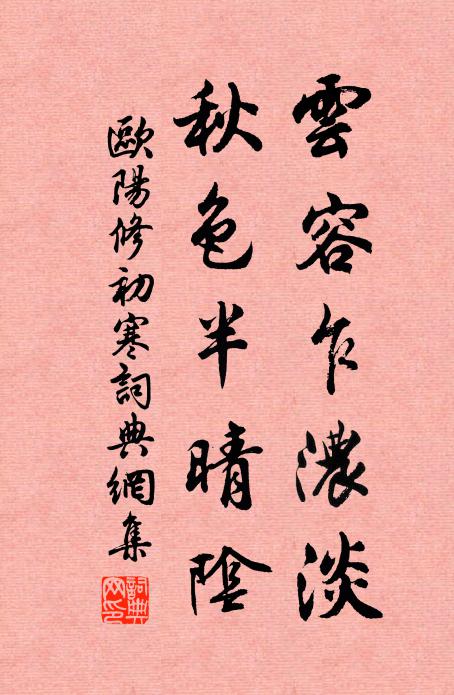 雲容乍濃淡
秋色半晴陰
歐陽修初寒詞典網集
詞典網印